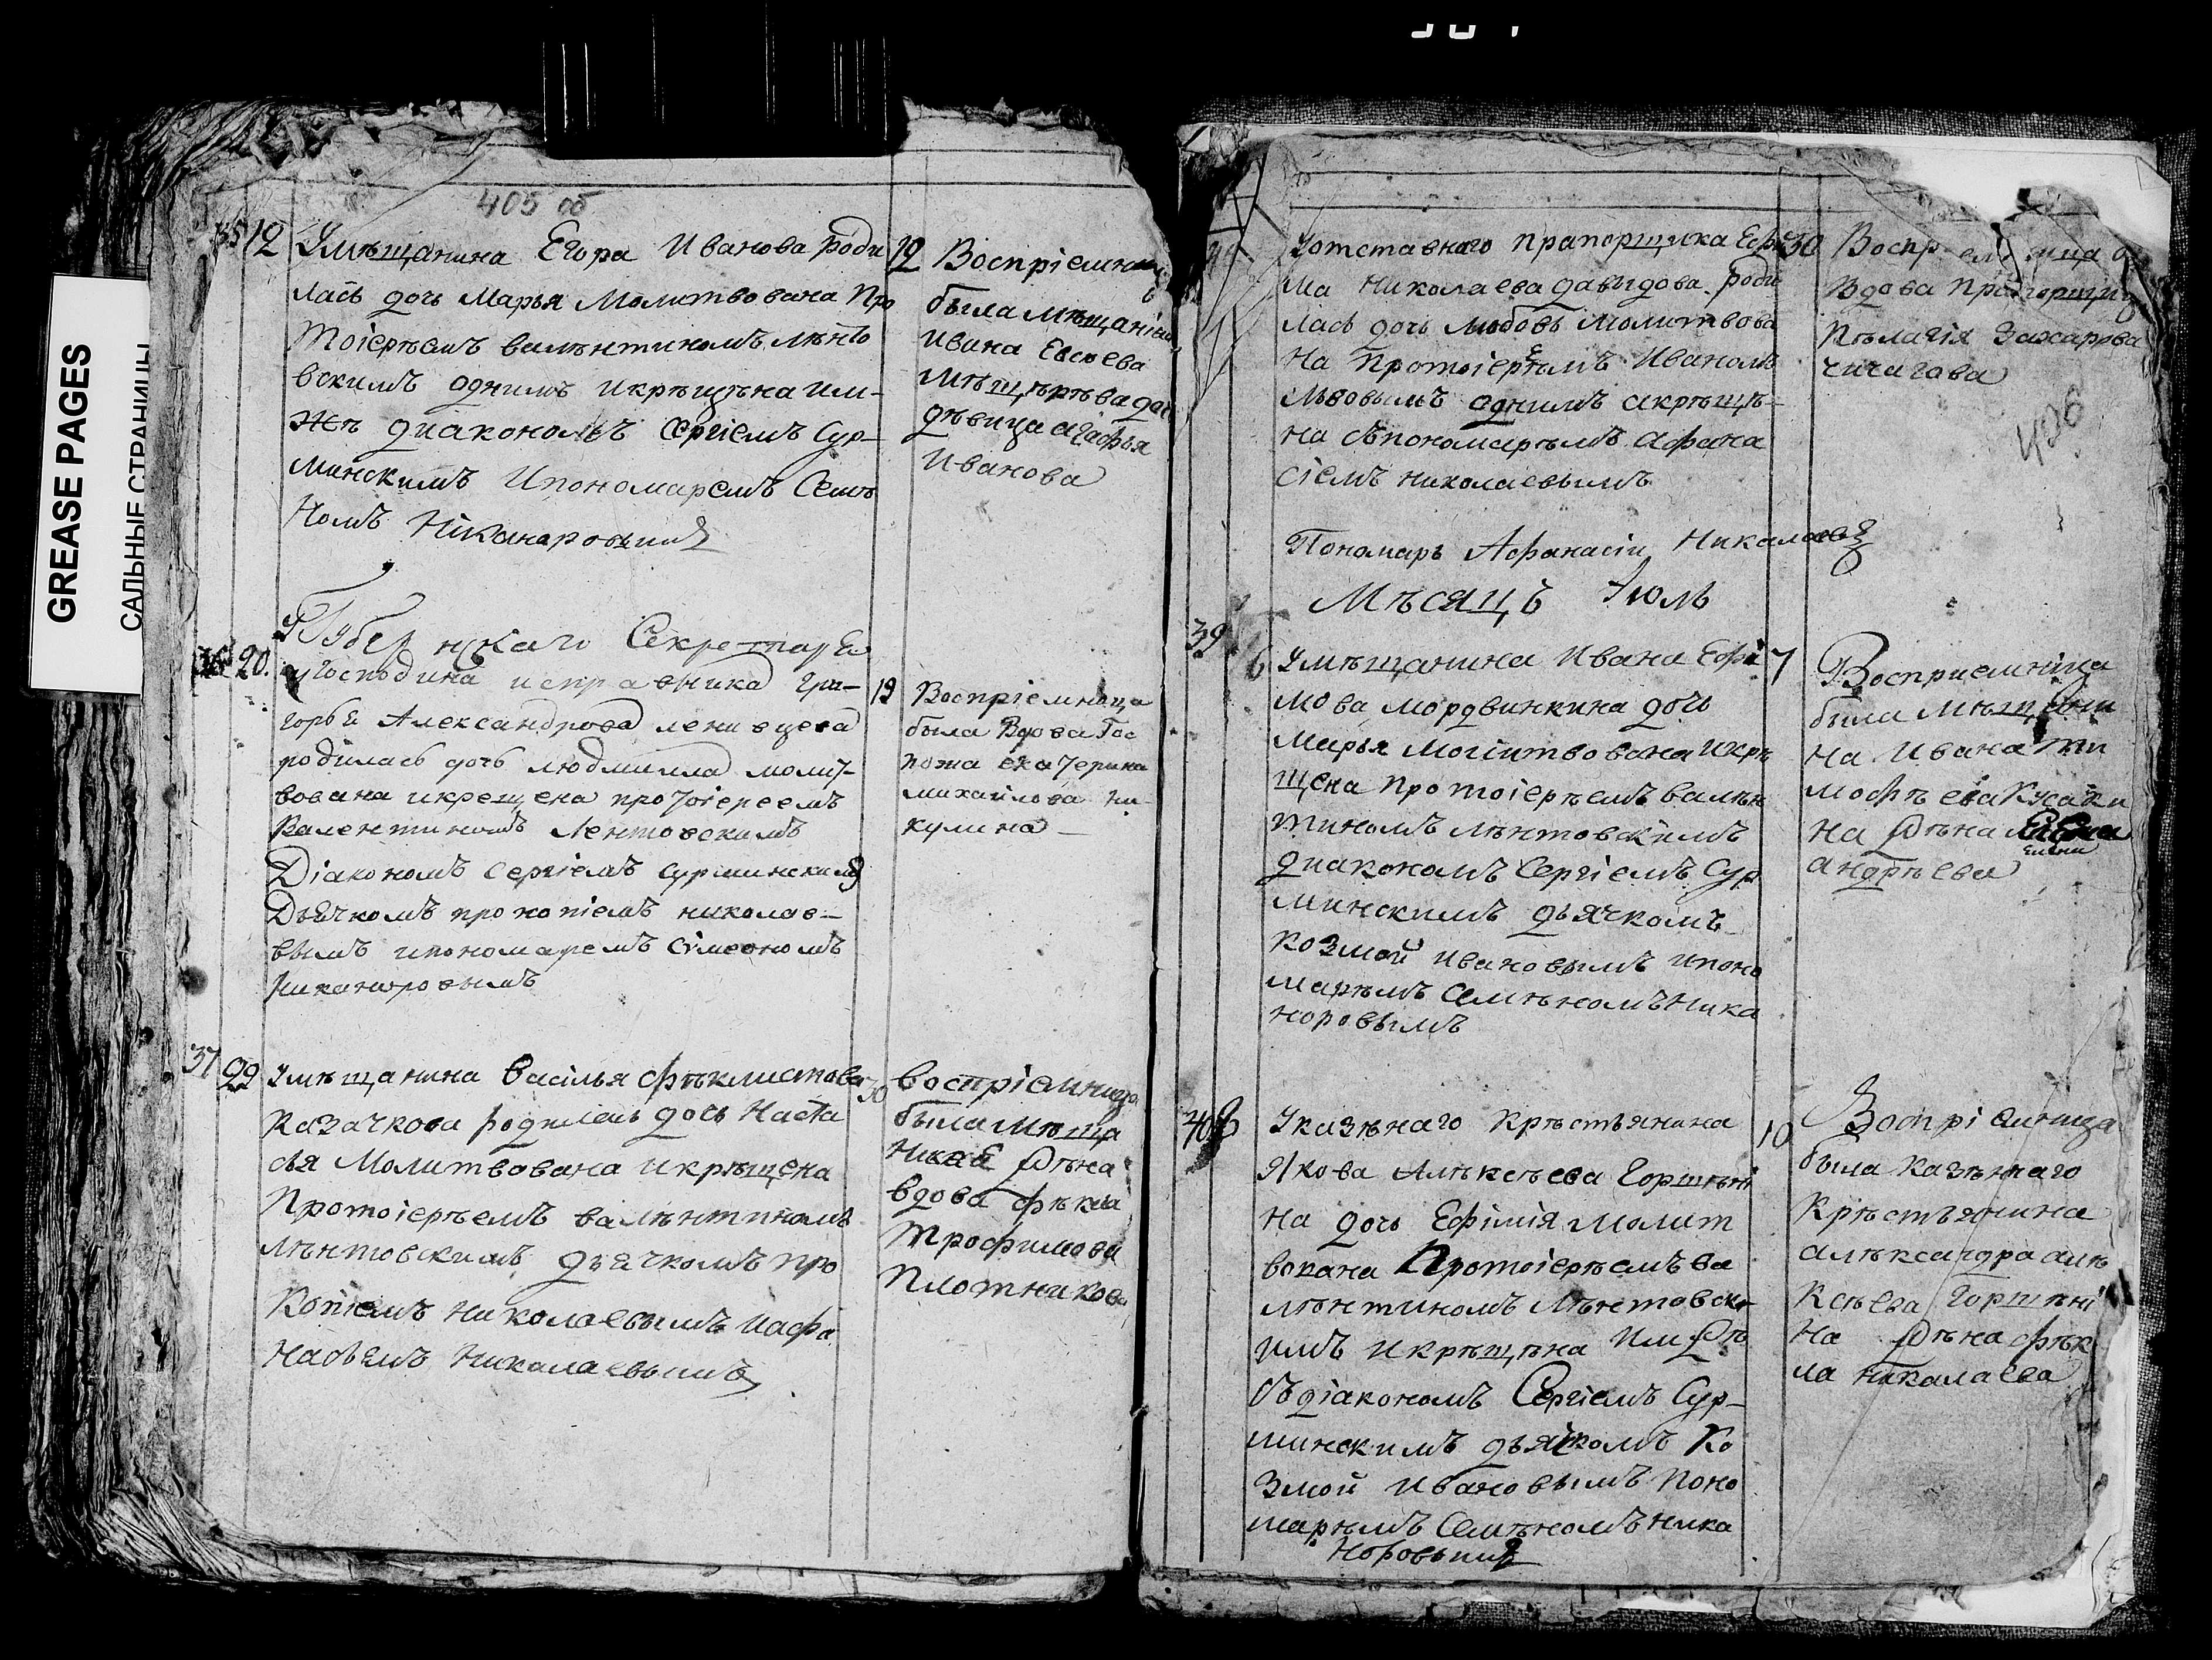 GREASE PAGES
САЛЬНЫЕ СТРАНИЦЫ
405 об
35 12 Умѣщанина Егора Иванова роди
лась дочь Марья Молитвована Про
тоіерѣемъ валѣнтиномъ лѣнто
вскимъ однимъ икрѣщѣна им-
жъ диакономъ Сергіемъ Сур-
минскимъ Ипономаремъ Семѣ
номъ Ніканоровымъ
12 Воспріемни
была мѣщаніна
Ивана Евсѣева
мѣщѣрѣва доч
дѣвица агафья
Иванова
36 20. Губернскаго Секретаря
уГосподина исправника гри-
горья Александрова ленивцева
роділась дочь людмилла молит-
вована икрещена протоіереемъ
Валентиномъ Лентовскимъ
Діакономъ Сергіемъ сурминскимъ
Дьячкомъ прокопіемъ николае-
вымъ ипономаремъ Симеономъ
Никаноровымъ
19 Воспріемница
была Вдова Гос
пожа екатерина
михайлова ни-
кулина
37 29 Умѣщанина Васілья фѣклистова
Казачкова родилась дочь Наста
сья Молитвована икрѣщена
Протоіерѣемъ валѣнтиномъ
лѣнтовскимъ дьячкомъ про
Копіемъ Николаевымъ иафа
Насьемъ Николаевымъ
30 воспріемница
была мѣща
Никаѣ жѣна
вдова фѣкла
Трофимова
Плотникова
Уотставнаго прапорщика Ефи
ма Николаева давыдова роди
лась дочь любовь молитвова
на протоіерѣемъ Иваномъ
львовымъ однимъ акрѣщѣ-
на сѣпономарѣмъ Афана
сіемъ николаевымъ
Пономарь Афанасіи Николаевъ
30
вдова прапорщиц
Пѣлагія Захарова
чичагова
406
Мѣсяцъ Іюль
39 6 Умѣщанина Ивана Ефи
мова мордвинкина дочь
марья Молитвована икрѣ
щена протоіерѣемъ валѣн
тиномъ лѣнтовскимъ
диакономъ Сергіемъ Сур
минскимъ дьячкомъ
Козмой Ивановымъ ипоно
марѣмъ Семѣномъ Ника
норовымъ
7 Восприемніца
была мѣщани
на Ивана ти
мофѣева Кусаки
на жѣна
Елена
андрѣева
40 8 Указѣнаго крѣстьянина
Якова Алѣксѣева Горшѣні
на дочь Ефімія Молит
вована Протоіерѣемъ ва
лѣнтиномъ Лѣнтовск
имъ икрѣщѣна Имжѣ
съ діакономъ Сергіемъ Сур-
минскимъ дьячкомъ Ко
змой Ивановымъ поно
марѣмъ Семѣномъ Ника
норовымъ
10 Воспріемница
была казѣнаго
Крѣстьянина
алѣксандра алѣ
Ксѣева Горшѣні
на жѣна фѣк
ла николаева